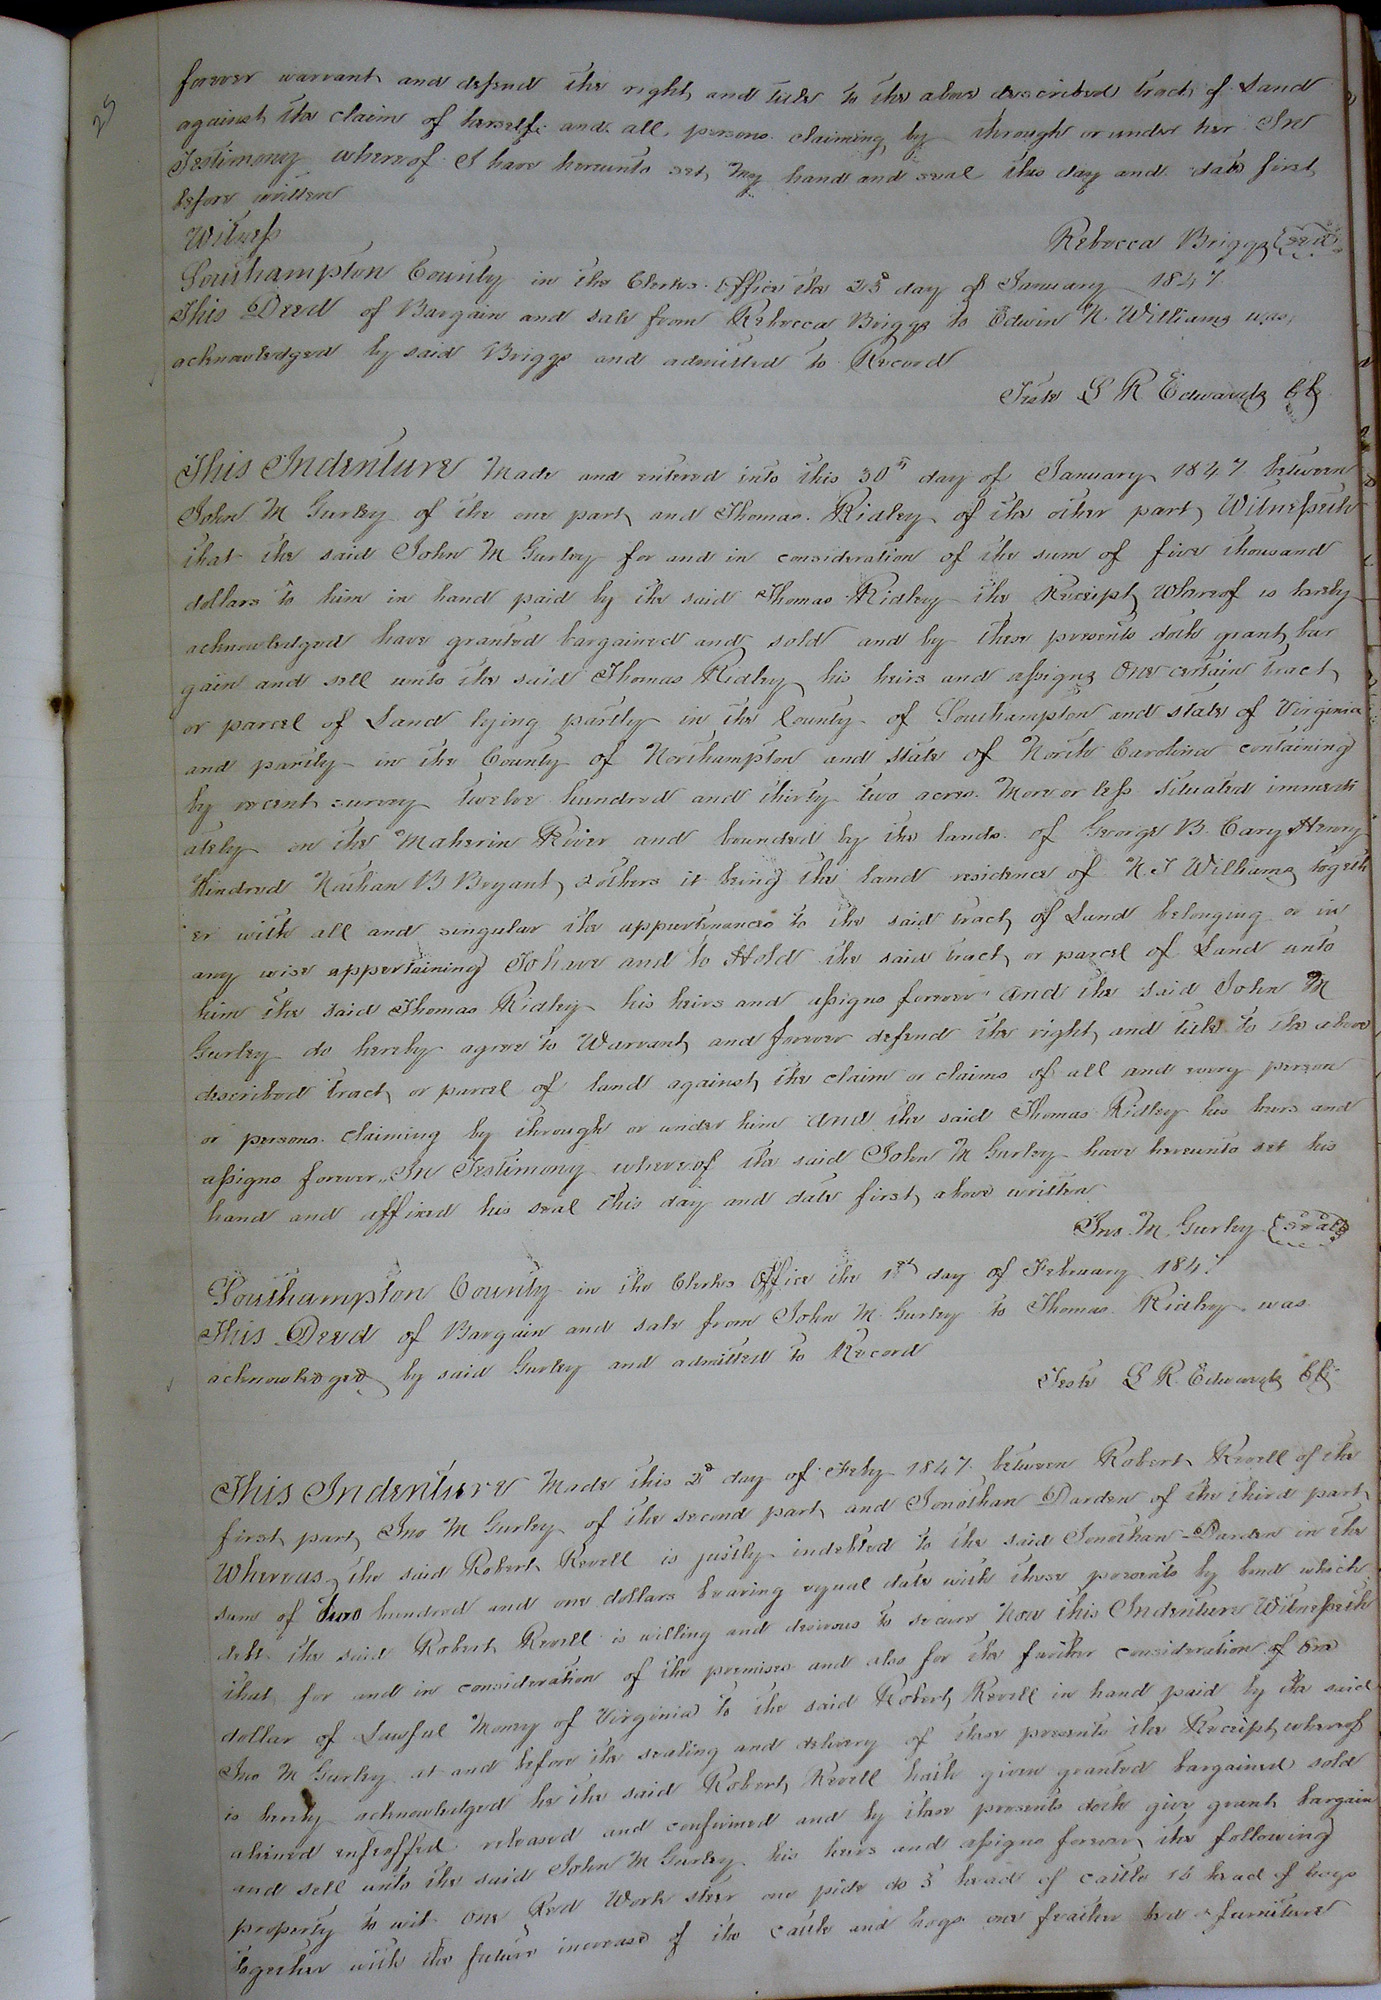 25
forever warrant and defend the right and title to the above described tract of Land
against the claim of herself and all persons claiming by through or under her In
Testimony whereof I have hereunto set my hand and seal this day and date first
before written
Witness
Rebecca Briggs {seal}
Southampton County in the Clerks Office the 25 day of January 1847
This Deed of Bargain and sale from Rebecca Briggs to Edwin N. Williams was
acknowledged by said Briggs and admitted to Record
Teste L R Edwards Clk
This Indenture Made and entered into this 30th day of January 1847 between
John M Gurley of the one part and Thomas Ridley of the other part Witnesseth
that the said John M Gurley for and in consideration of the sum of five thousand
dollars to him in hand paid by the said Thomas Ridley the Receipt Whereof is hereby
acknowledged have granted bargained and sold and by these presents doth grant bar
gain and sell unto the said Thomas Ridley his heirs and assigns One certain tract
or parcel of Land lying partly in the County of Southampton and state of Virginia
and partly in the County of Northampton and State of North Carolina containing
by recent survey twelve hundred and thirty two acres More or less Situated immedi
ately on the Maherin River and bounded by the lands of George B. Cary Henry
Kindred Nathan B Bryant & others it being the land residence of N. T Williams togeth
er with all and singular the appurtenances to the said tract of Land belonging or in
any wise appertaining To have and to Hold the said tract or parcel of Land unto
him the said Thomas Ridley his heirs and assigns forever And the said John M
Gurley do hereby agree to Warrant and forever defend the right and title to the above
described tract or parcel of land against the claim or claims of all and every person
or persons claiming by through or under him And the said Thomas Ridley his heirs and
assigns forever. In Testimony whereof the said John M Gurley have hereunto set his
hand and affixed his seal this day and date first above written
Jno. M. Gurley {seal}
Southampton County in the Clerks Office the 1st day of February 1847
This Deed of Bargain and sale from John M. Gurley to Thomas Ridley was
acknowledged by said Gurley and admitted to Record
Teste L R. Edwards Clk
This Indenture Made this 2d day of Feby 1847 between Robert Revell of the
first part Jno M Gurley of the second part and Jonothan Darden of the third part
Whereas the said Robert Revell is justly indebted to the said Jonothan Darden in the
sum of two hundred and one dollars bearing equal date with these presents by bond which
debt the said Robert Revell is willing and desirous to secure Now this Indenture Witnesseth
that for and in consideration of the premises and also for the further consideration of one
dollar of Lawful Money of Virginia to the said Robert Revell in hand paid by the said
Jno M Gurley at and before the sealing and delivery of these presents the Receipt whereof
is hereby acknowledged he the said Robert Revell hath given granted bargained sold
aliened enfeoffed released and confirmed and by these presents doth give grant bargain
and sell unto the said John M Gurley his heirs and assigns forever the following
property to wit One Red Work steer one pide do 5 head of cattle 16 head of hogs
together with the future increase of the cattle and hogs one feather bed & furniture